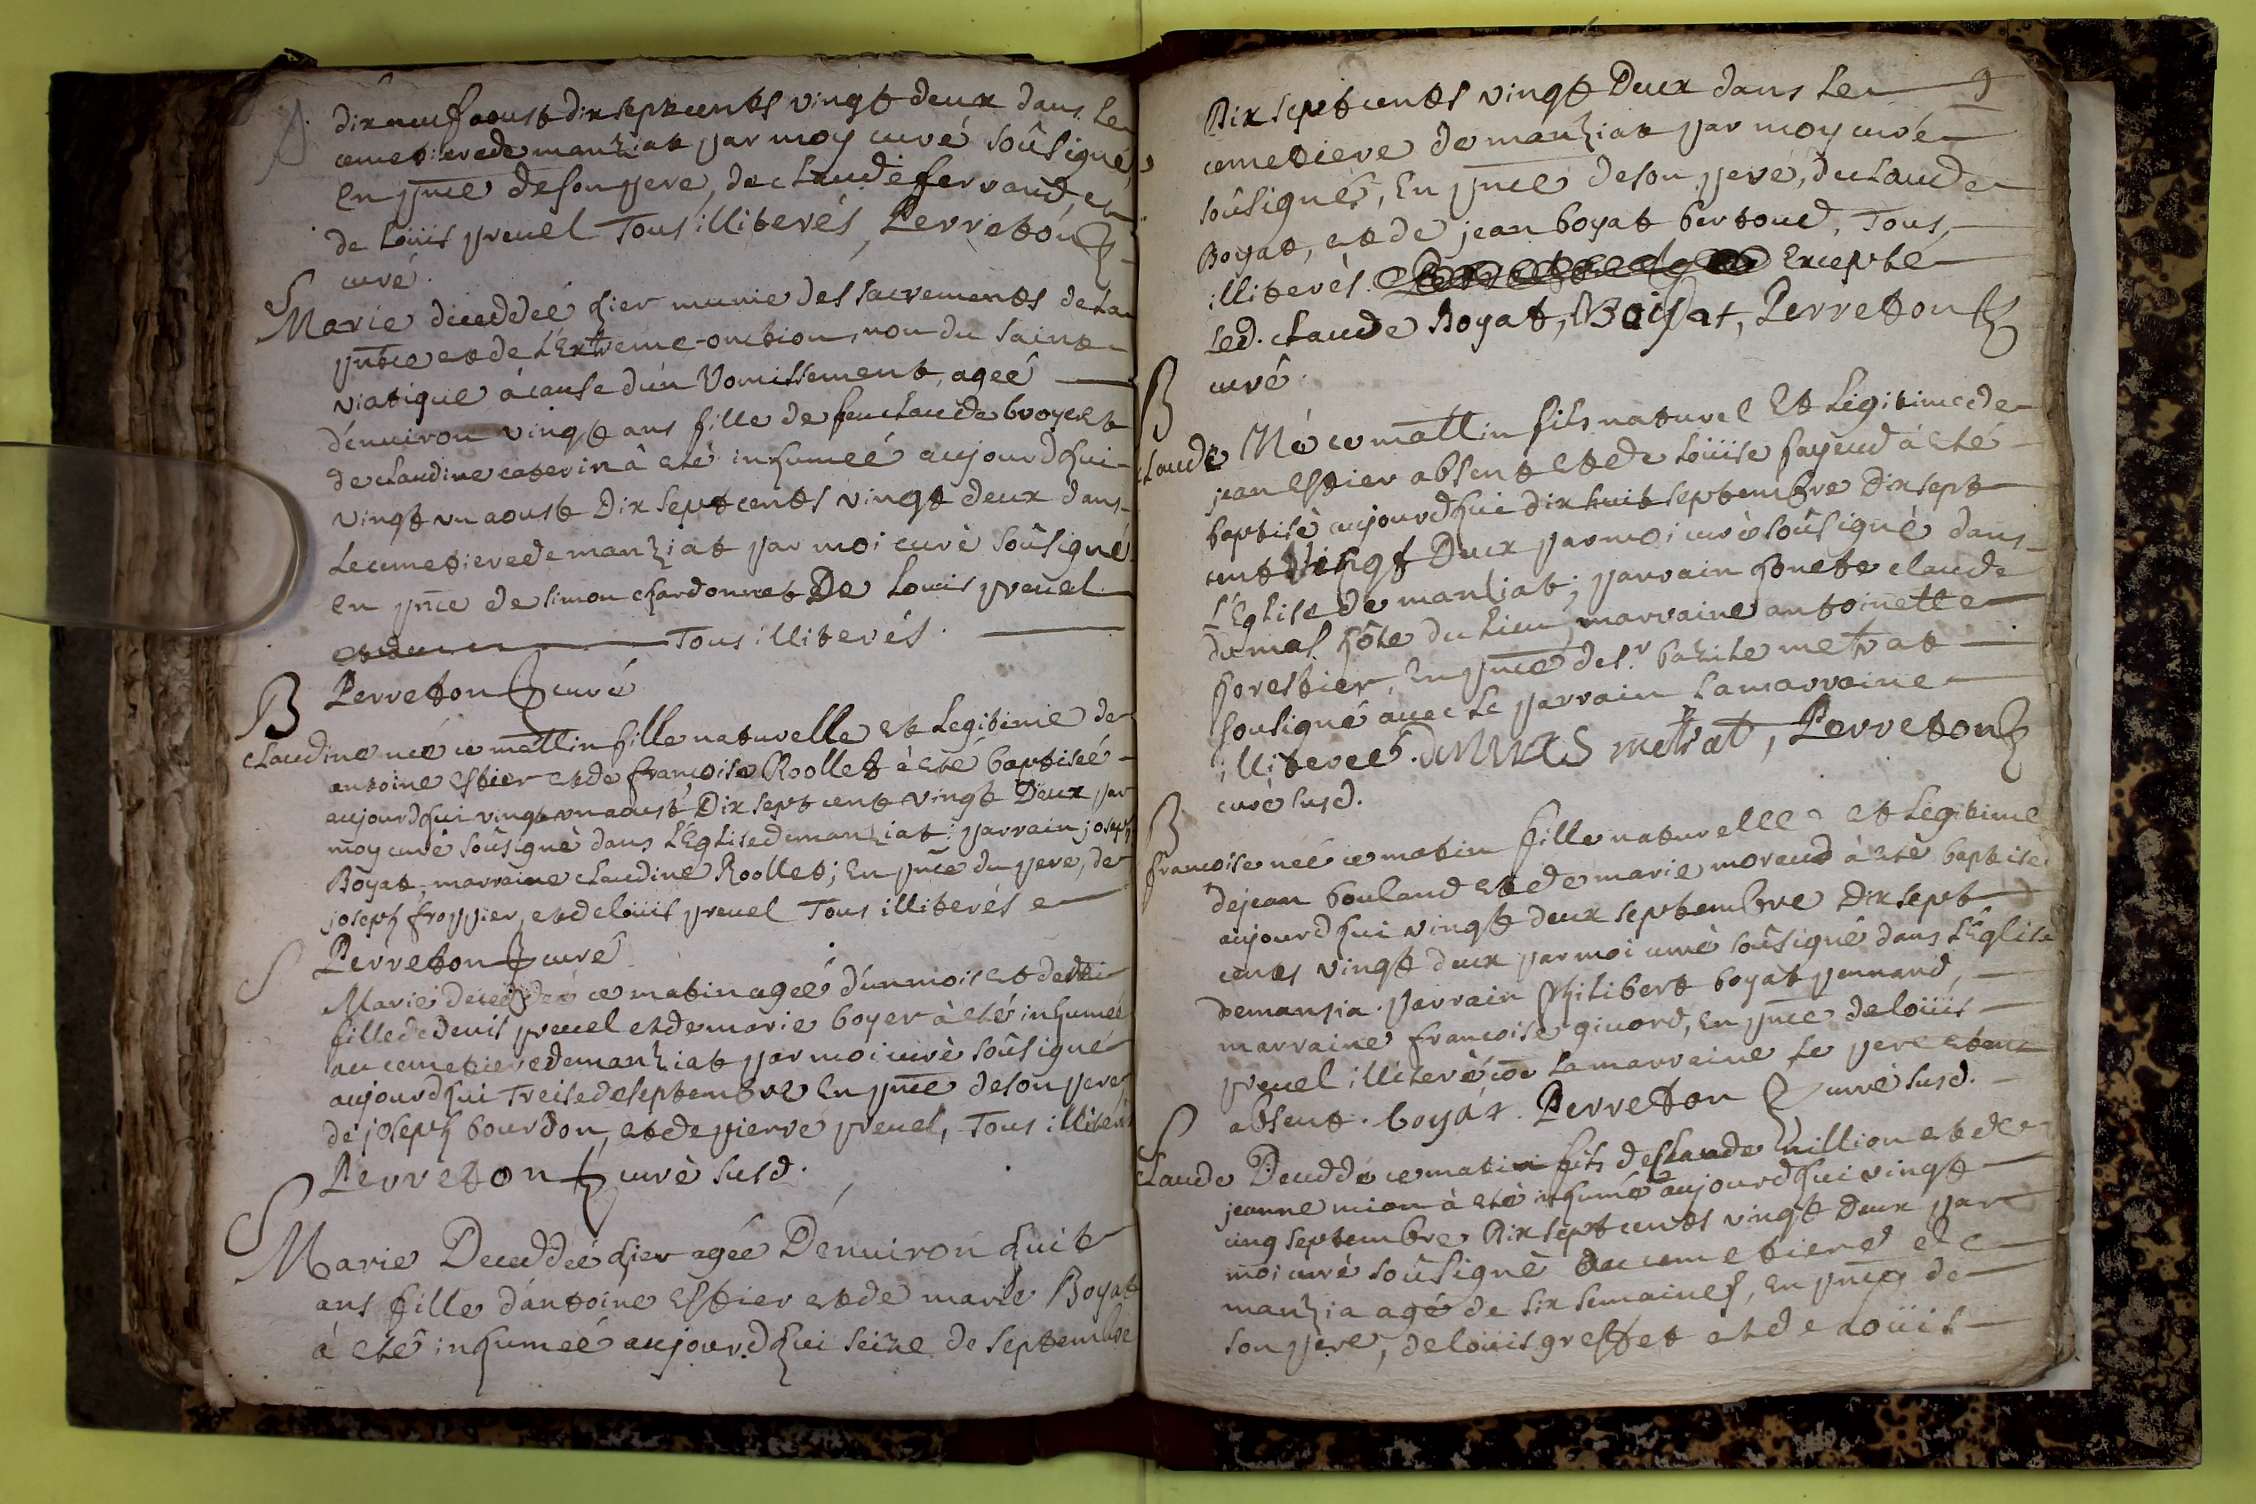 dixneuf aoust dix sept cents vingt deux dans le
cemetiere de manziat par moy curé soûsigné,
en pnce de son pere, de claude ferraud, et
de loüis preuel Tous illiterés, Perreton
curé.
S
Marie deceddeé hier munie des sacrements de la
pntce et de l'Extreme-onction, non du saint
viatique à cause d'un vomissement, ageé
d'enuiron vingt ans fille de feu claude broyer et
de claudine caterin à eté inhumeé aujourdhui
vingt un aoust Dix sept cents vingt deux dans
le cemetiere de manziat par moi curè soûsigné
en pnce de simon chardonnet De Louis preuel
Tous illiterés.
Perreton curé
B
claudine neé ce mattin fille naturelle et Legitime de
antoine estier et de françoise Roollet à eté baptiseé
aujourdhui vingt un aoust Dix sept cent vingt Deux par
moy curè soûsignè dans l'Eglise de manziat; parrain joseph
Boyat, marraine claudine Roollet; En pnce du pere, de
joseph froppier, et de loüis preuel Tous illiterés
Perreton curé
S
Marie deceddeé ce matin ageé d'un mois et demi
fille de denis preuel et de marie boyer à eté inhumeé
au cemetiere de manziat par moi curè soûsigné
aujourdhui Treise de septembre En pnce de son pere,
de joseph bourdon, et de pierre preuel, Tous illiterés
Perreton curè susd.
S
Marie Deceddeé hier ageé D'enuiron huit
ans fille d'antoine Estier et de marie Boyat
à eté inhumeé aujourdhui seize de septembre
9
Dix sept cents vingt Deux dans le
cemetiere de manziat par moy curé
soûsigné, En pnce de son pere, de claude
Boyat, et de jean boyat bertoud, Tous
illiterés Excepté
led. claude Boyat, Boiyat, Perreton
curé.
B
claude Né ce mattin fils naturel Et Légitime de
jean Estier absent et de loüise fayeud à eté
baptisè aujourdhui dix huit septembre Dix sept
cent Vingt Deux par moi curé soûsignè dans
l'Eglise de manziat; parrain honete claude
dumas hôte du lieu, marraine antoinette
forestier, En pnce de sr bazile metrat
souligné auec le parrain la marraine
illitereé. DUMAS metrat, Perreton
curè susd.
B
francoise neé ce matin fille naturelle et Legitime
de jean bouland et de marie moraud à eté baptiseé
aujourdhui vingt deux septembre Dix sept
cents vingt deux par moi curè soûsignè dans l'Eglise
de manzia. parrain philibert boyat pennand,
marraine francoise giuord, En pnce de loüis
preuel illiterè coe la marraine le pere etant
absent. boyat. Perreton curè susd.
S
claude Deceddé ce matin fils de claude million et de
jeanne mion à eté inhumé aujourdhui vingt
cinq septembre Dix sept cents vingt Deux par
moi curé soûsignè au cemetiere de
manzia agé de six semaines, En pnce de
son pere, de loüis greffet et de loüis